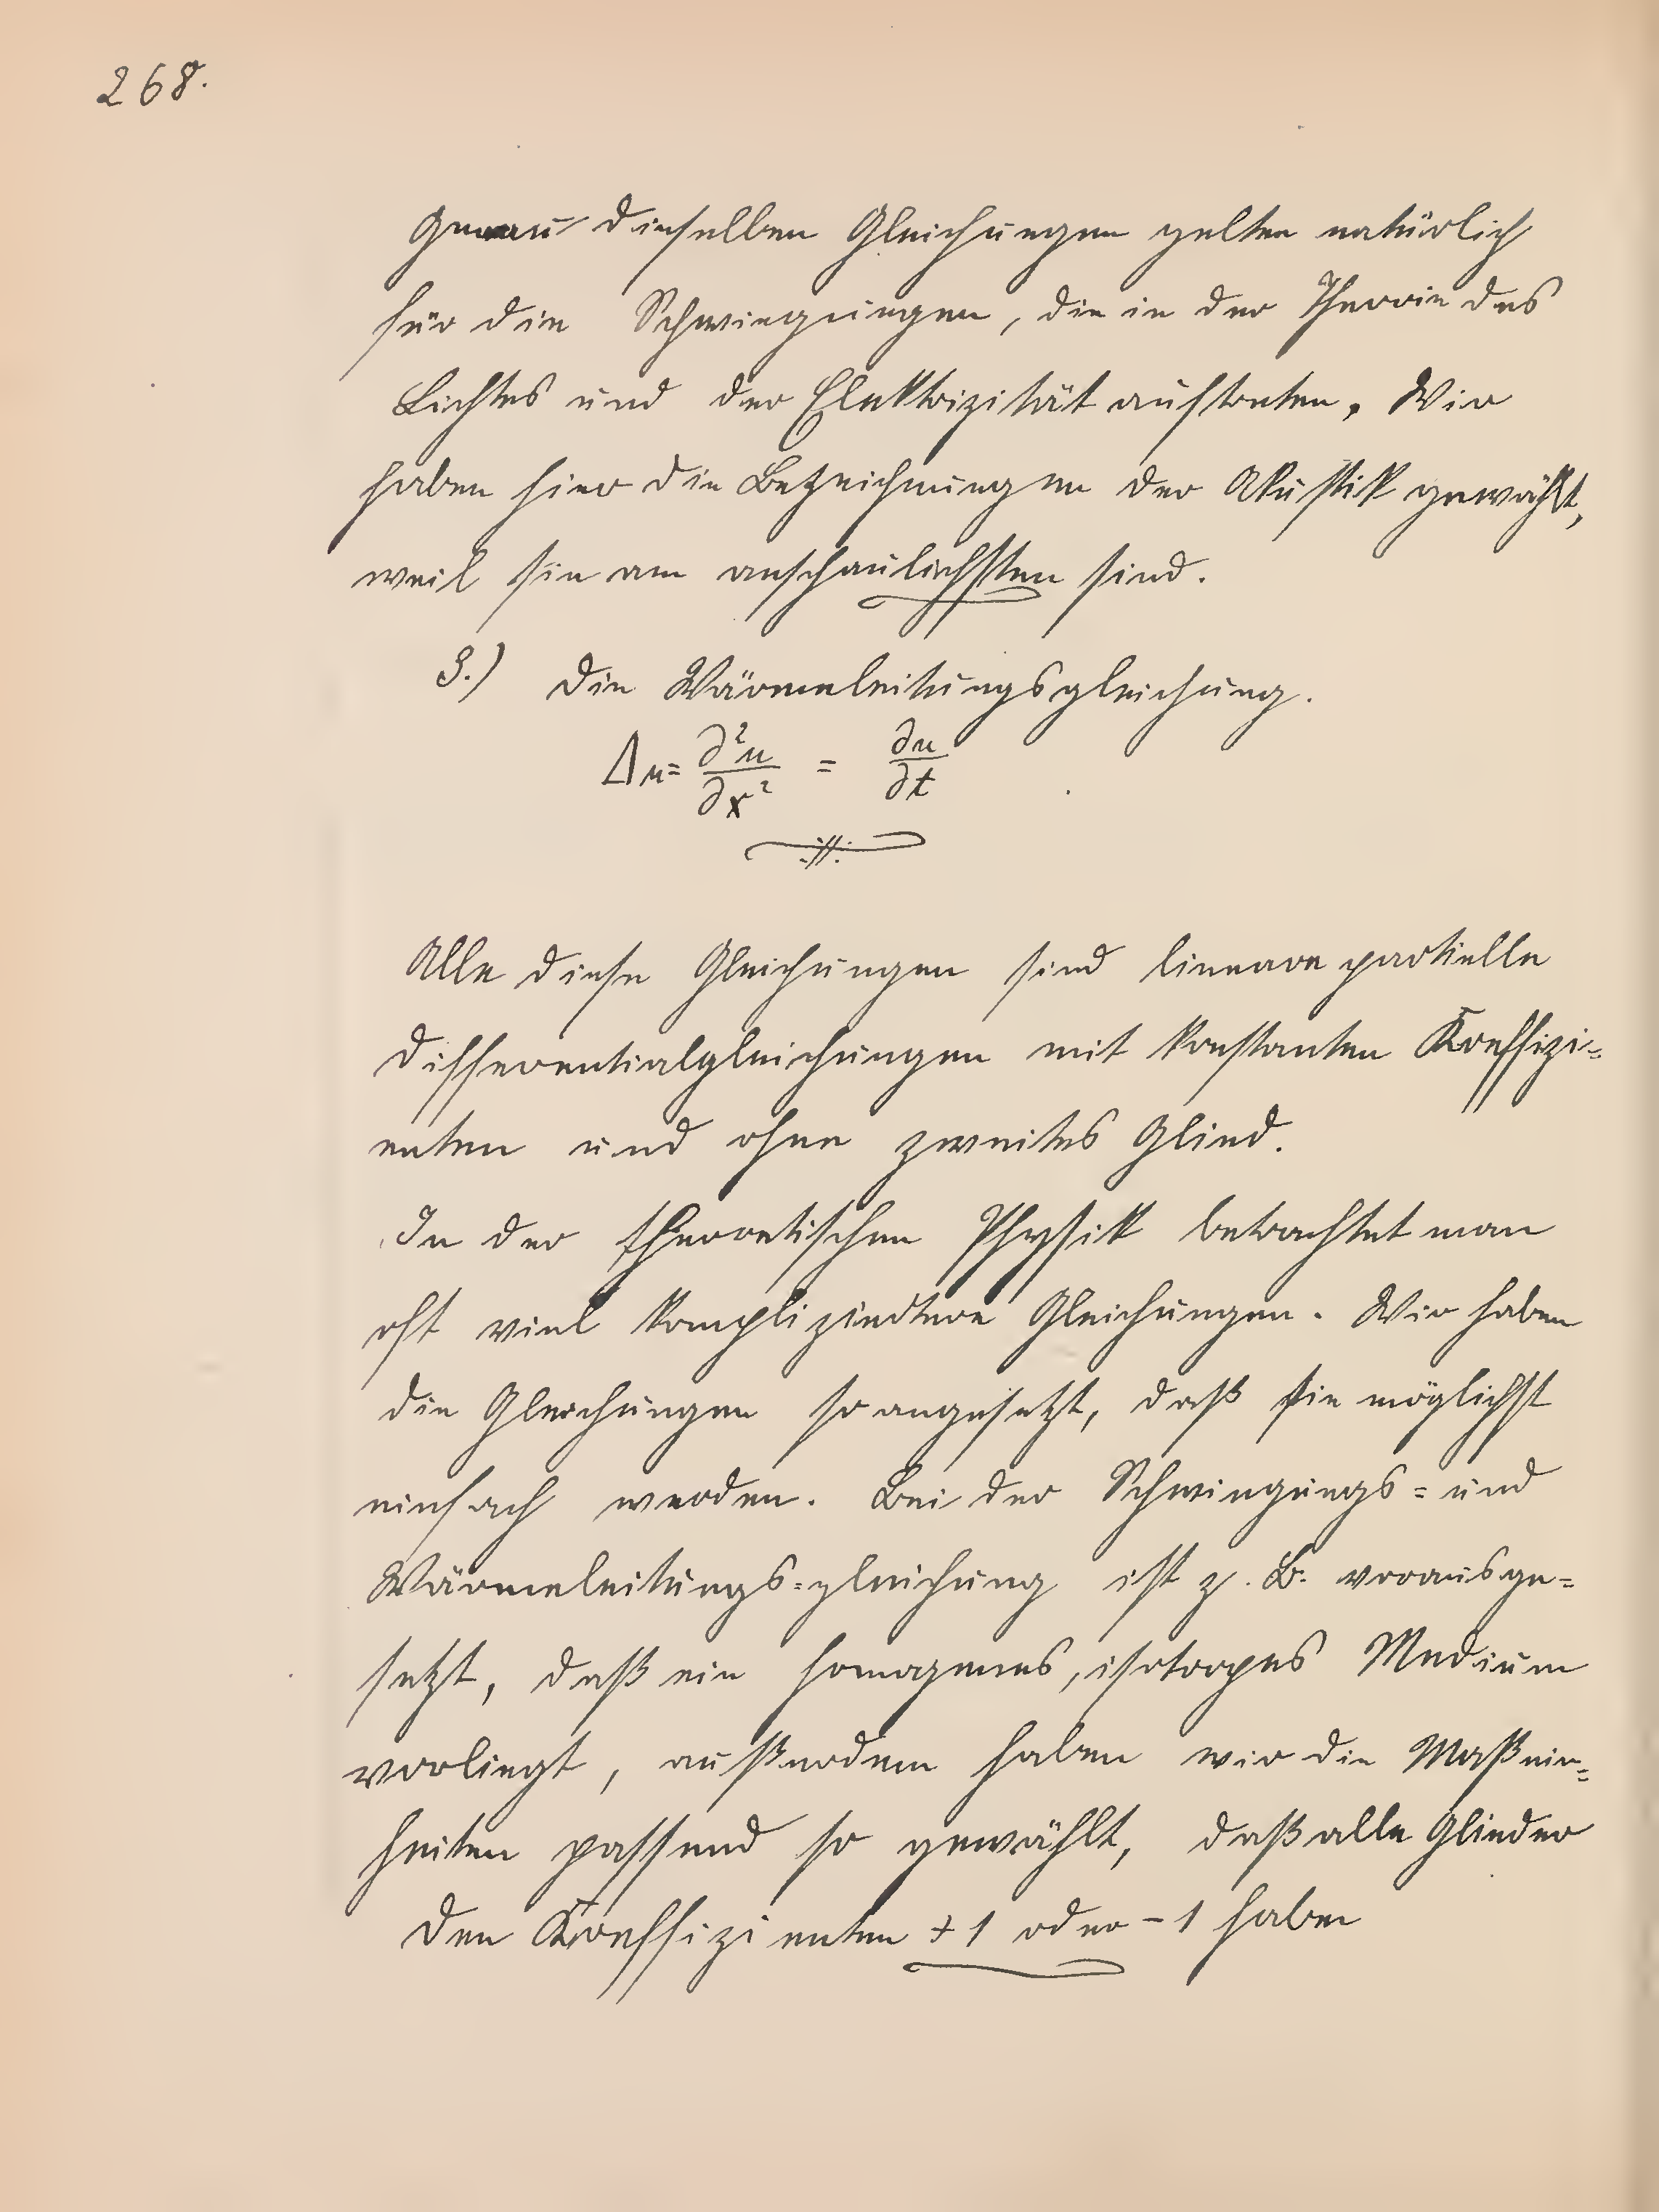 268.
Genau dieselben Gleichungen gelten natürlich
für die Schwingungen, die in der Theorie des
Lichtes und der Elektrizität auftreten. Wir
haben hier die Bezeichnungen der Akustik gewählt,
weil sie am anschaulichsten sind.
3.) Die Wärmeleitungsgleichung.
Δu = ∂²u/∂x² = ∂u/∂t
Alle diese Gleichungen sind lineare partielle
Differentialgleichungen mit konstanten Koeffizi=
enten und ohne zweites Glied.
In der theoretischen Physik betrachtet man
oft viel kompliziertere Gleichungen. Wir haben
die Gleichungen so angesetzt, daß sie möglichst
einfach werden. Bei der Schwingungs= und
Wärmeleitungs=gleichung ist z. B. vorausge=
setzt, daß ein homogenes, isotropes Medium
vorliegt, außerdem haben wir die Maßein=
heiten passend so gewählt, daß alle Glieder
den Koeffizienten +1 oder -1 haben